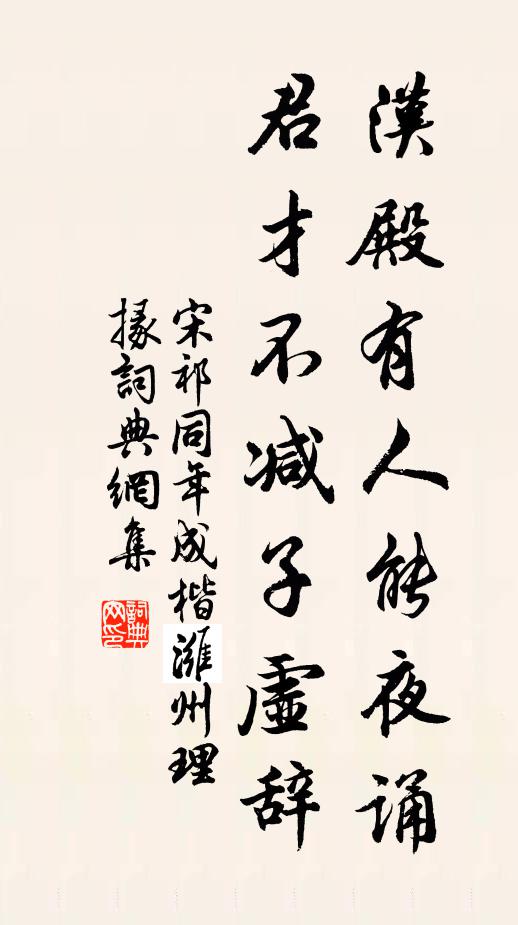 漢殿有人能夜诵
君才不减子虛辞
宋祁同年成楷潍州理
掾詞典網集
詞典网印